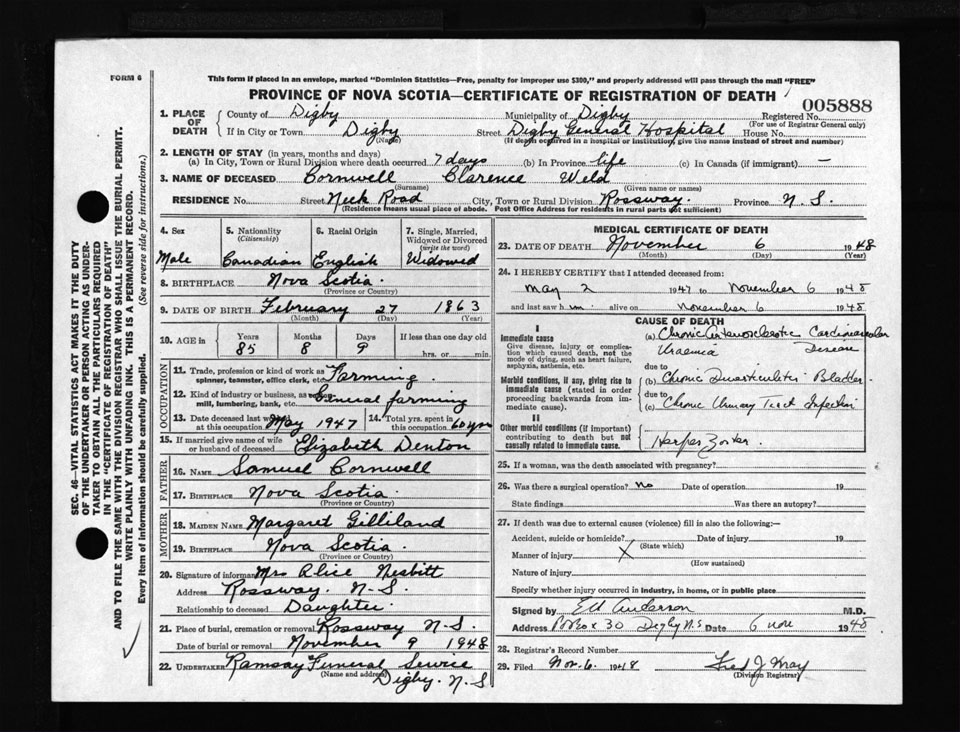 FORM 6
This form if placed in an envelope, marked "Dominion Statistics—Free, penalty for improper use $300," and properly addressed will pass through the mail "FREE"
PROVINCE OF NOVA SCOTIA—CERTIFICATE OF REGISTRATION OF DEATH
005888
1. PLACE OF DEATH
County of Digby
Municipality of Digby
Registered No.
(For use of Registrar General only)
If in City or Town Digby
(Name)
Street Digby General Hospital House No.
(If death occurred in a hospital or institution, give the name instead of street and number)
2. LENGTH OF STAY (in years, months and days)
(a) In City, Town or Rural Division where death occurred 7 days (b) In Province life (c) In Canada (if immigrant) —
3. NAME OF DECEASED Cornwell Clarence Weld
(Surname) (Given name or names)
RESIDENCE No. Street Neck Road City, Town or Rural Division Rossway. Province N. S.
(Residence means usual place of abode. Post Office Address for residents in rural parts not sufficient)
4. Sex
Male
5. Nationality
(Citizenship)
Canadian
6. Racial Origin
English
7. Single, Married, Widowed or Divorced
(write the word)
Widowed
8. BIRTHPLACE Nova Scotia
(Province or Country)
9. DATE OF BIRTH February 27 1863
(Month) (Day) (Year)
10. AGE in
Years Months Days If less than one day old
85 8 9 hrs. or min.
OCCUPATION
11. Trade, profession or kind of work as spinner, teamster, office clerk, etc. Farming
12. Kind of industry or business, as cotton-mill, lumbering, bank, etc. General farming
13. Date deceased last worked at this occupation May 1947
14. Total yrs. spent in this occupation 60 yrs
15. If married give name of wife or husband of deceased Elizabeth Denton
FATHER
16. NAME Samuel Cornwell
17. BIRTHPLACE Nova Scotia.
(Province or Country)
MOTHER
18. MAIDEN NAME Margaret Gilliland
19. BIRTHPLACE Nova Scotia.
(Province or Country)
20. Signature of informant Mrs Alice Nesbitt
Address Rossway. N-S.
Relationship to deceased Daughter.
21. Place of burial, cremation or removal Rossway N-S.
Date of burial or removal November 9 1948
22. UNDERTAKER Ramsay Funeral Service
(Name and address)
Digby. N-S
MEDICAL CERTIFICATE OF DEATH
23. DATE OF DEATH November 6 1948
(Month) (Day) (Year)
24. I HEREBY CERTIFY that I attended deceased from:
May 2 1947 to November 6 1948
and last saw him alive on November 6 1948
CAUSE OF DEATH
I
Immediate cause
Give disease, injury or complication which caused death, not the mode of dying, such as heart failure, asphyxia, asthenia, etc.
(a) Chronic Arteriosclerotic Cardiovascular Disease
Uraemia
due to
Morbid conditions, if any, giving rise to immediate cause (stated in order proceeding backwards from immediate cause).
(b) Chronic Diverticulitis Bladder
due to
(c) Chronic Urinary Tract Infection
II
Other morbid conditions (if important) contributing to death but not causally related to immediate cause.
Herpes Zoster
25. If a woman, was the death associated with pregnancy?
26. Was there a surgical operation? No Date of operation 19
State findings Was there an autopsy?
27. If death was due to external causes (violence) fill in also the following:—
Accident, suicide or homicide? Date of injury 19
(State which)
Manner of injury
(How sustained)
Nature of injury
Specify whether injury occurred in industry, in home, or in public place
Signed by Ed Anderson M.D.
Address PO Box 30 Digby N.S Date 6 Nov 1948
28. Registrar's Record Number
29. Filed Nov. 6. 1948 Fred J. Wray
(Division Registrar)
SEC. 46—VITAL STATISTICS ACT MAKES IT THE DUTY
OF THE UNDERTAKER OR PERSON ACTING AS UNDER-
TAKER TO OBTAIN ALL THE PARTICULARS REQUIRED
IN THE "CERTIFICATE OF REGISTRATION OF DEATH"
AND TO FILE THE SAME WITH THE DIVISION REGISTRAR WHO SHALL ISSUE THE BURIAL PERMIT.
WRITE PLAINLY WITH UNFADING INK. THIS IS A PERMANENT RECORD.
Every item of information should be carefully supplied. (See reverse side for instructions.)